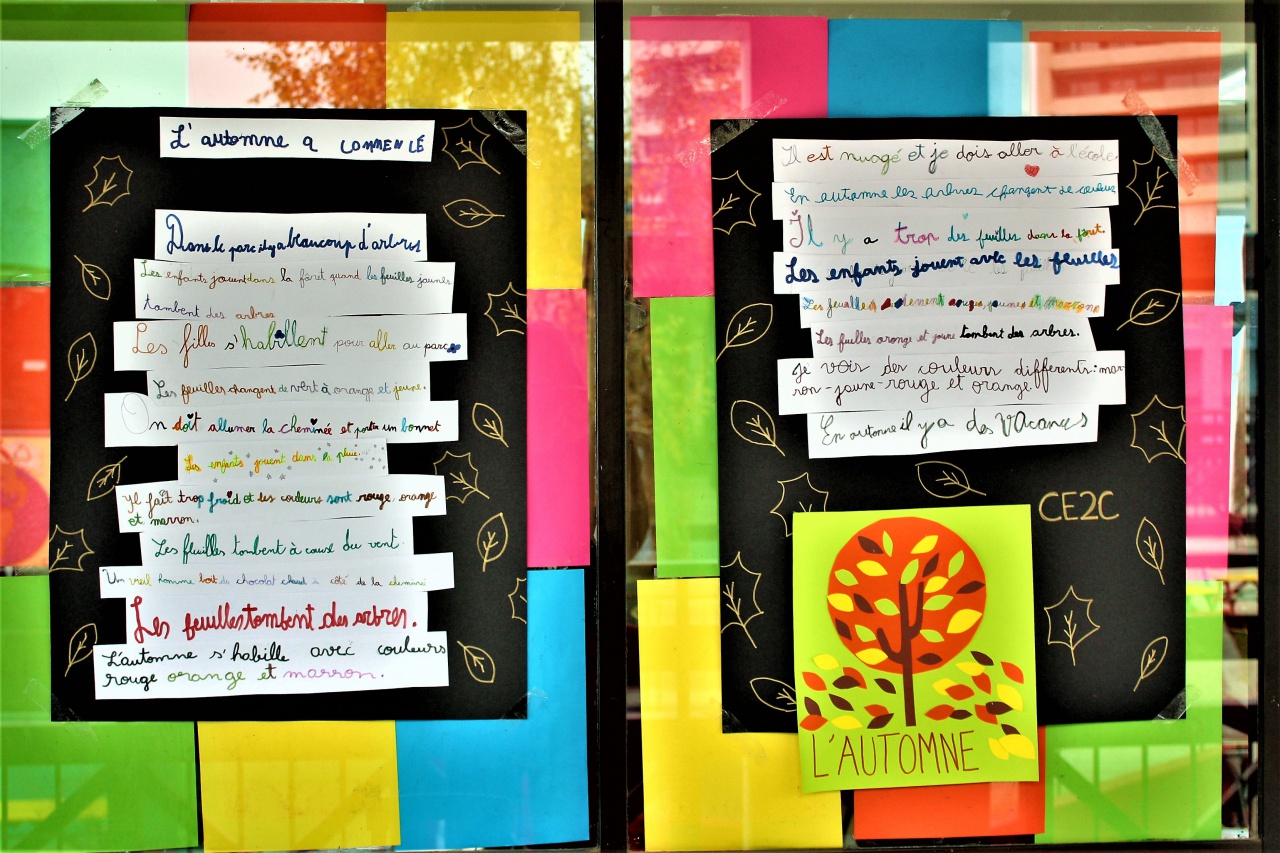 L'automne a commencé
Dans le parc il y a beaucoup d'arbres
Les enfants jouent dans la fôret quand les feuilles jaunes
tombent des arbres
Les filles s'habillent pour aller au parc
Les feuilles changent de vert à orange et jeune.
On doit allumer la cheminée et porter un bonnet
Les enfants jouent dans la pluie.
Il fait trop froid et les couleurs sont rouge, orange
et marron.
Les feuilles tombent à cause du vent.
Un vieil homme boit du chocolat chaud à côté de la cheminée
Les feuilles tombent des arbres.
L'automne s'habille avec couleurs
rouge orange et marron.
Il est nuagé et je dois aller à l'école.
En automne les arbres changent de couleur
Il y a trop des feuilles dans la fôret.
Les enfants jouent avec les feuilles
Les feuilles jaunes et marrons
Les fuelles orange et jaune tombent des arbres.
Je vois des couleurs differents: mar-
ron-jaune-rouge et orange.
En automne il y a des vacances
CE2C
L'AUTOMNE